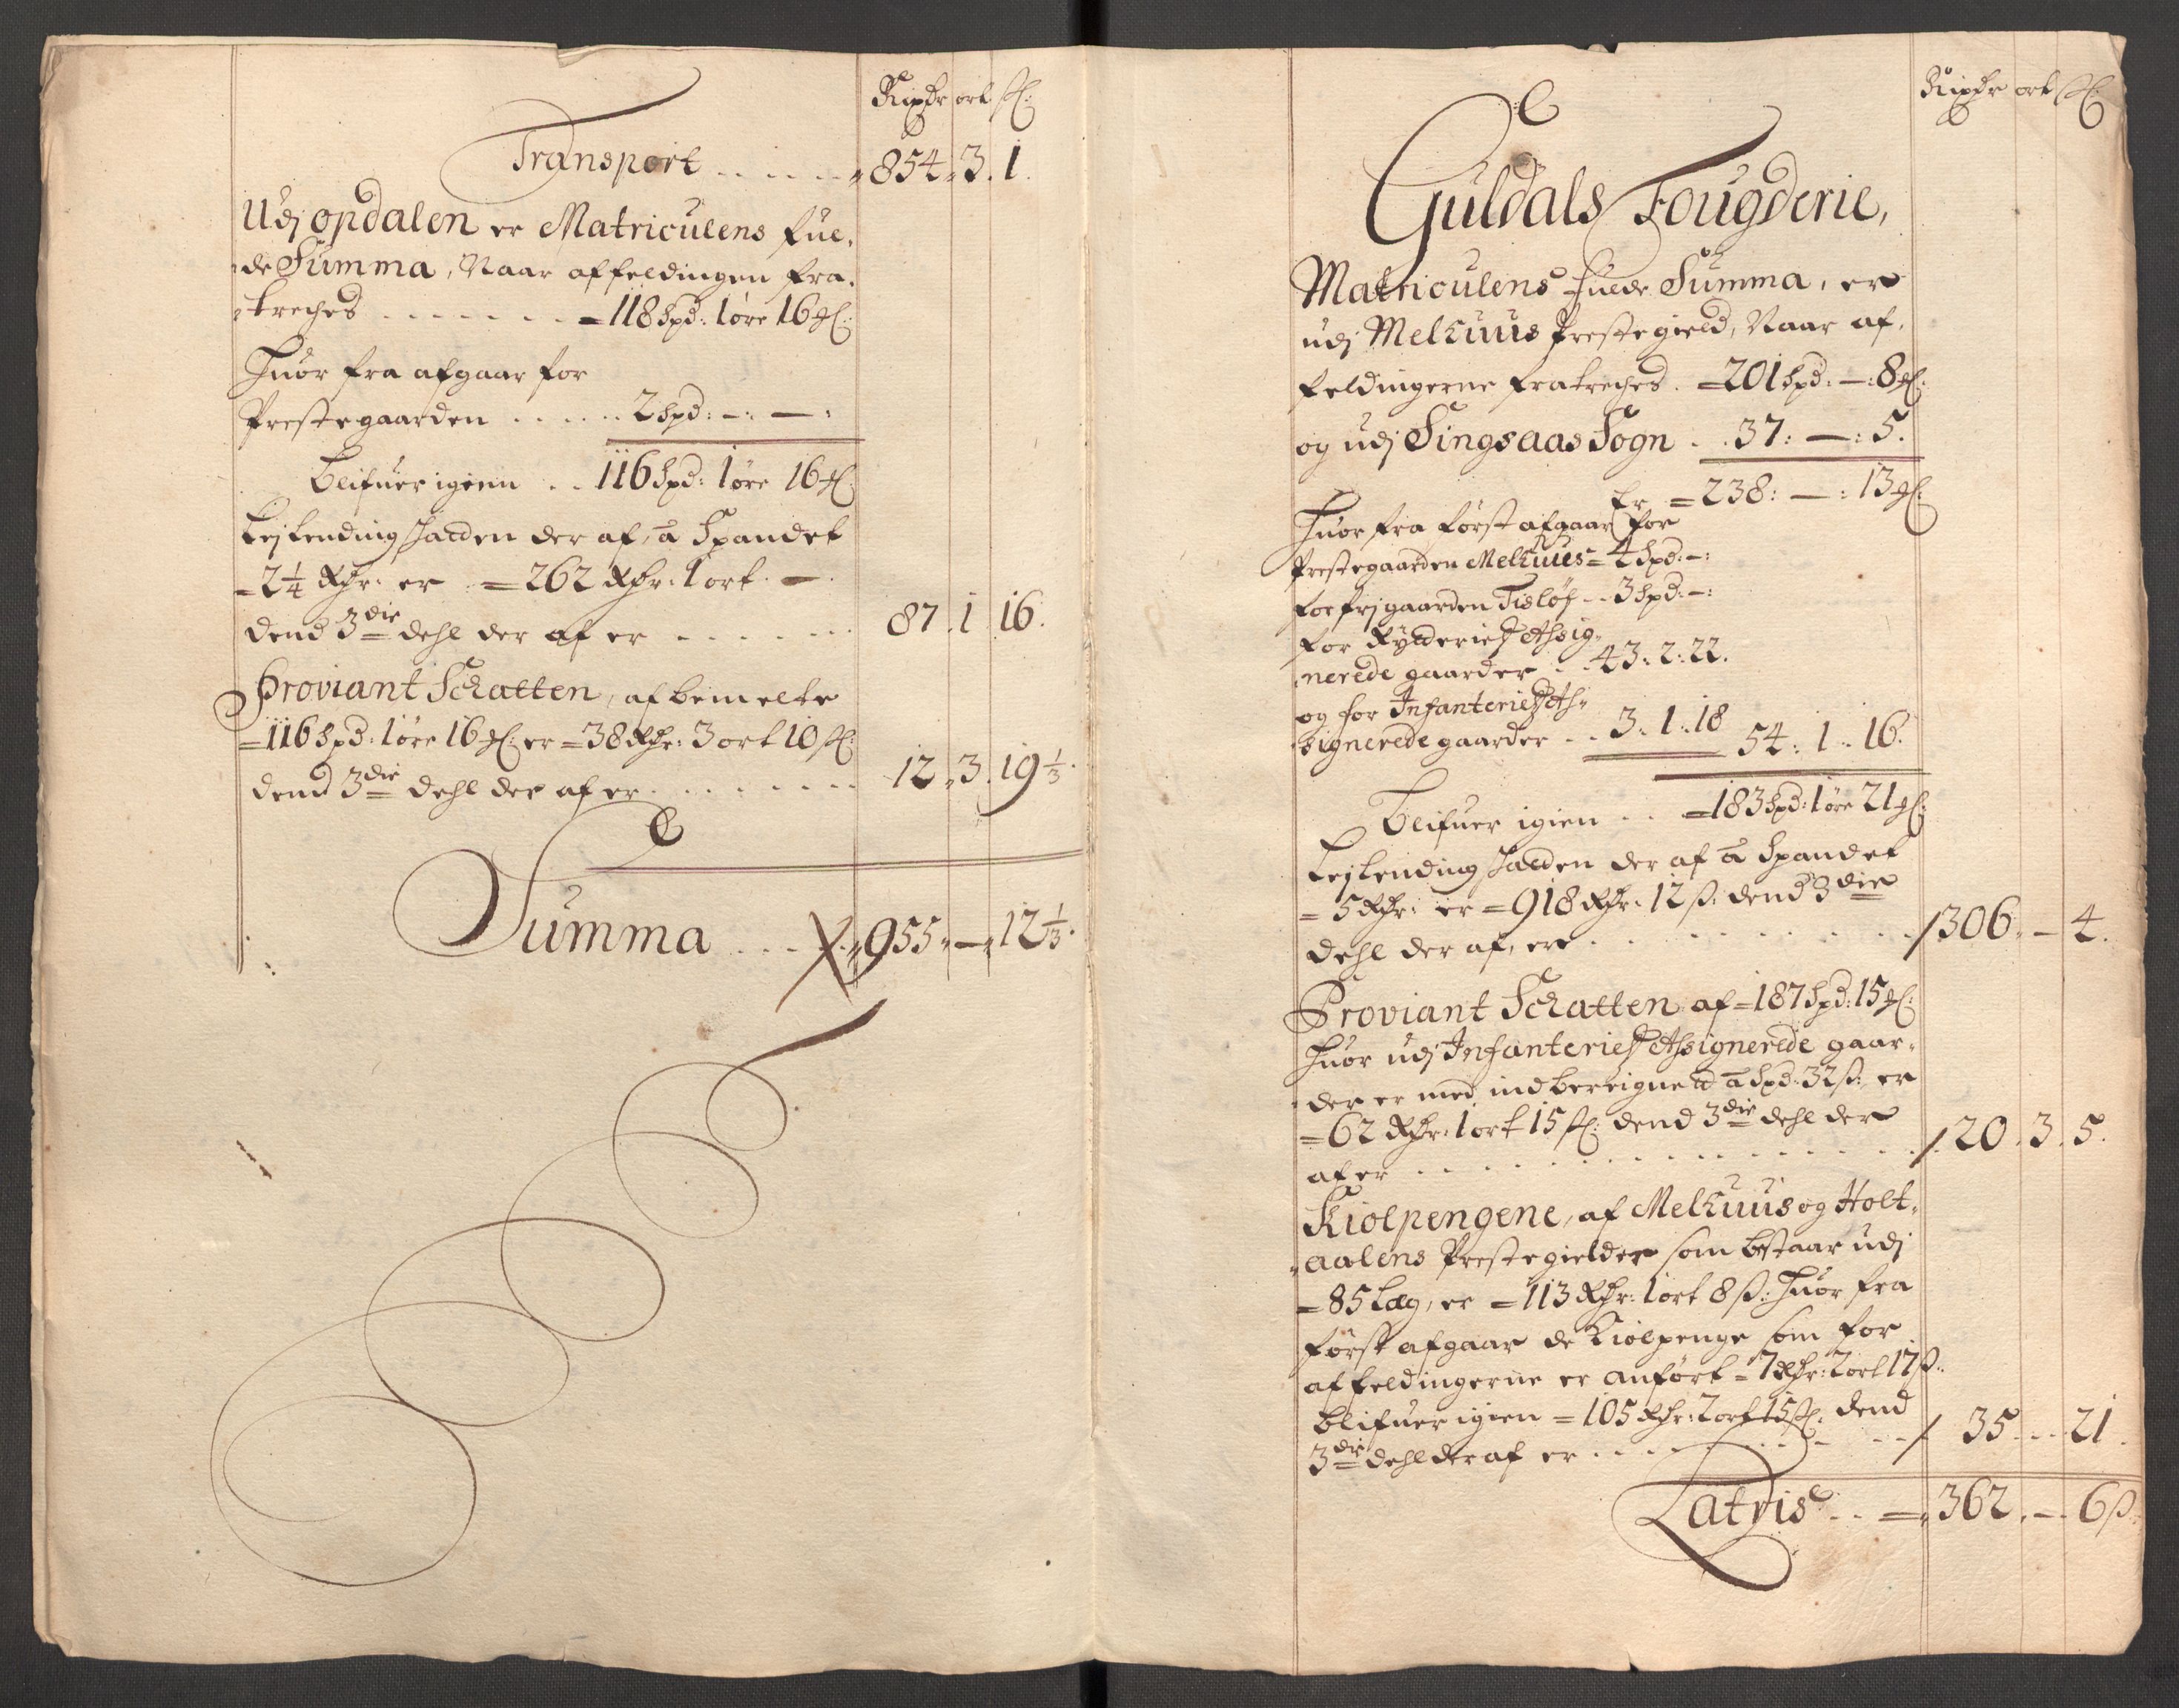 Rixdr ort s:
Transport . . . . . 854. 3. 1.
Udj Opdalen er Matriculens fuл-
de Summa, Naar affeldingen fra-
treches . . . . . . = 118 spd: 1 øre 16 #:
Huor fra afgaar for
Prestegaarden . . . . . 2 spd: —: —:
Blifuer igien . . 116 spd: 1 øre 16 #:
Leylending Skatten der af, a Spandet
= 2 1/4 Rdr: er = 262 Rdr: 1 ort. —.
dend 3die dehl der af er . . . . . . 87. 1 16.
Proviant Schatten, af bemelte
= 116 spd: 1 øre 16 #: er = 38 Rdr: 3 ort 10 s:
dend 3die dehl der af er . . . . . . . . 12. 3. 19 1/3.
Summa . . . 955. — 12 1/3.
Rixdr ort s:
Guldals Fougderie,
Matriculens fulde Summa, er
udj Melhuus Prestegield, Naar af-
feldingerne fratreches. = 201 spd: —: 8 #:
og udj Singsaas Sogn . . 37: —: 5.
Er = 238: —: 13 #:
Huor fra først afgaar for
Prestegaarden Melhuus = 4 spd: —:
for frj gaarden Tisløf . . 3 spd: —:
for Rytterietz Assig-
nerede gaarder . . 43: 2: 22.
og for Infanterietz As-
signerede gaarder . . 3: 1: 18 54: 1: 16.
Blifuer igien . . = 183 spd: 1 øre 21 #:
Leylending Skatten der af a Spandet
= 5 Rdr: er = 918 Rdr: 12 s: dend 3die
dehl der af, er . . . . . . . . . 306. — 4.
Proviant Schatten af = 187 spd: 15 #:
Huor udj Infanterietz Assignerede gaar-
der er med indbereignet a spd: 32 s: er
= 62 Rdr: 1 ort 15 s: dend 3die dehl der
af er . . . . . . . . . . . . . . 20. 3. 5.
Kiølpengene, af Melhuus og Holt-
aalens Prestegielder som bestaar udj
= 85 Læg, er = 113 Rdr: 1 ort 8 s: Huor fra
først afgaar de Kiølpenge som for
affeldingerne er anført = 7 Rdr: 2 ort 17 s:
blifuer igien = 105 Rdr: 2 ort 15 s: dend
3die dehl der af er . . . . . . . . 35. . . 21.
Latris . . = 362. — 6 s: